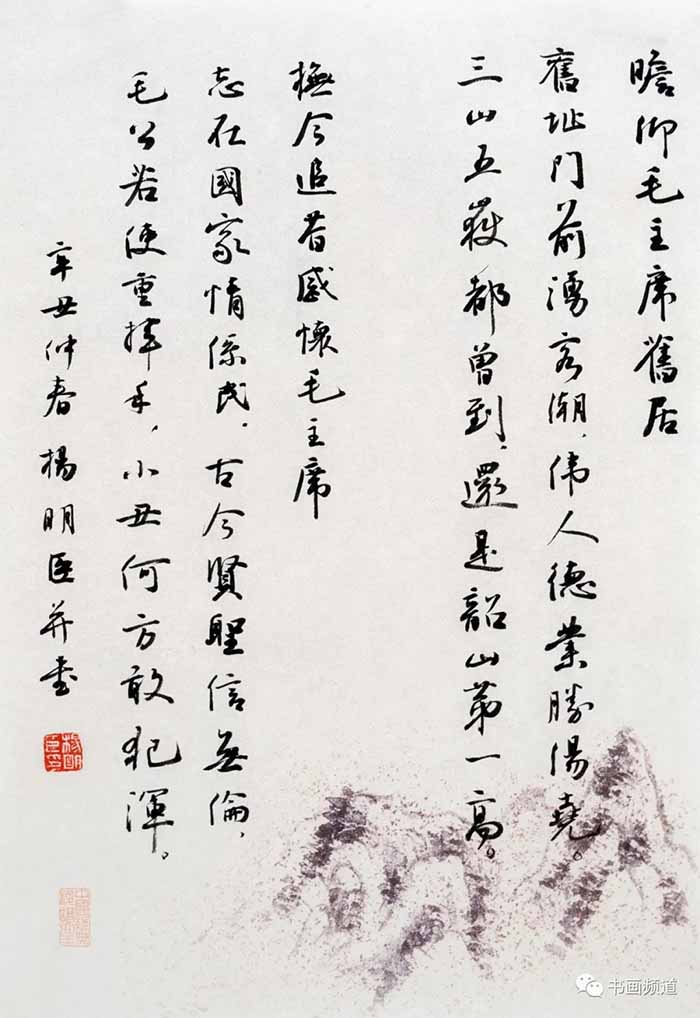 瞻仰毛主席舊居
舊址門前湧客潮，偉人德業勝湯堯。
三山五嶽都曾到，還是韶山第一高。
撫今追昔感懷毛主席
志在國家情係民，古今賢聖信無倫，
毛公若使重揮手，小丑何方敢犯渾。
辛丑仲春楊明臣并書
楊明臣印
书画频道